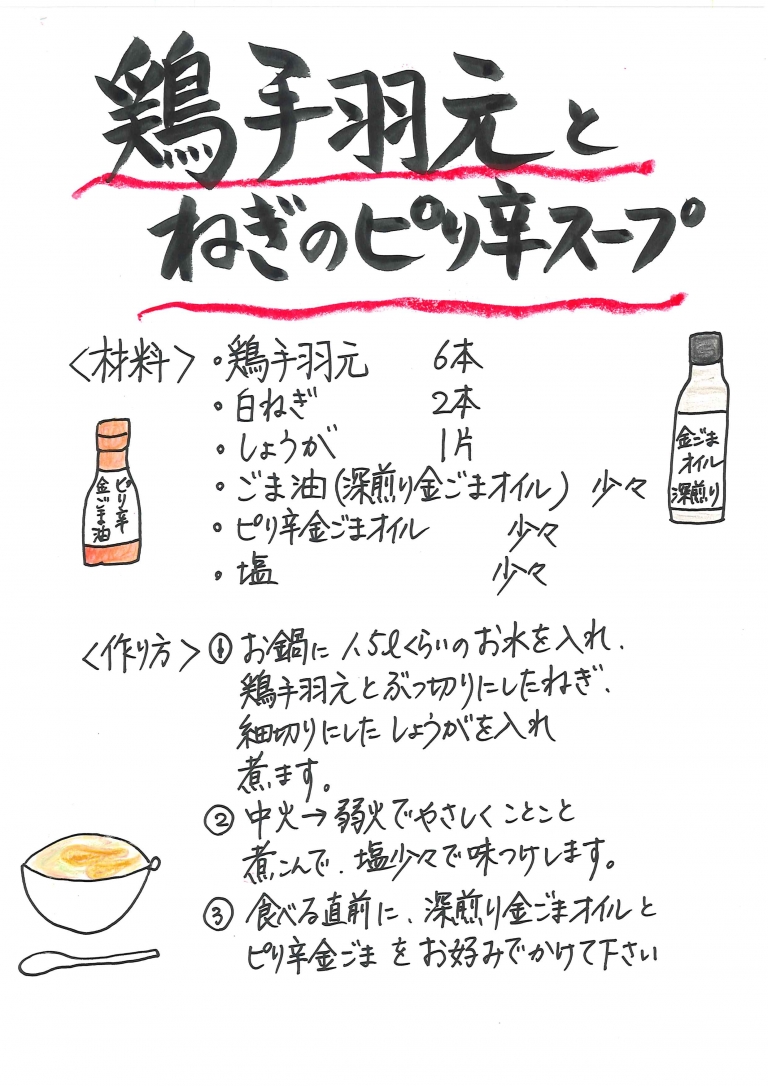 鶏手羽元と
ねぎのピリ辛スープ
〈材料〉・鶏手羽元 6本
・白ねぎ 2本
・しょうが 1片
・ごま油(深煎り金ごまオイル) 少々
・ピリ辛金ごまオイル 少々
・塩 少々
ピリ辛
金ごま油
金ごま
オイル
深煎り
〈作り方〉① お鍋に1.5ℓくらいのお水を入れ、
鶏手羽元とぶつ切りにしたねぎ、
細切りにしたしょうがを入れ
煮ます。
② 中火→弱火でやさしくことこと
煮こんで、塩少々で味つけします。
③ 食べる直前に、深煎り金ごまオイルと
ピリ辛金ごまをお好みでかけて下さい